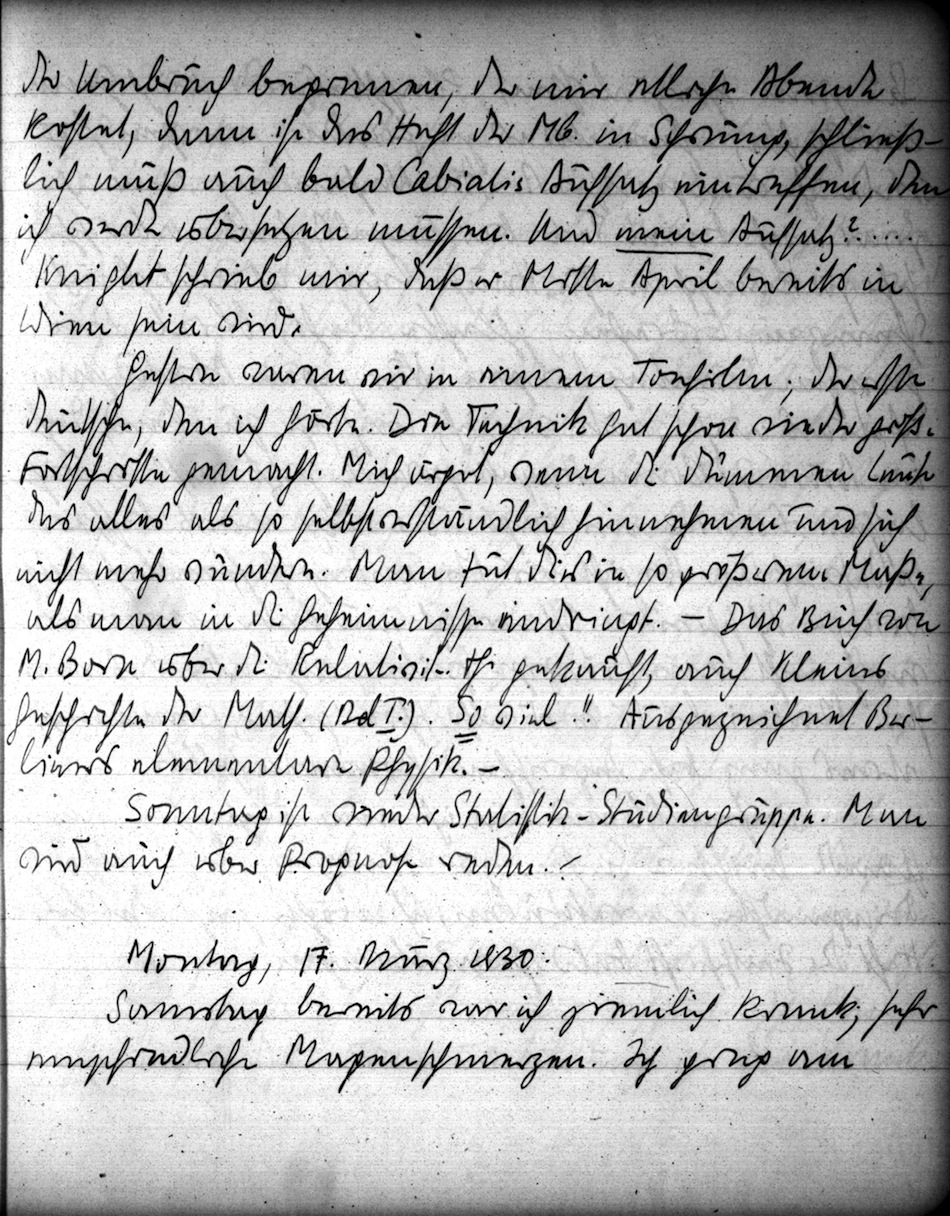 der Umbruch begonnen, der mir etliche Abende
kostet, dann ist das Heft der Mb. in Schwung, schließ-
lich muß auch bald Cabiatis Aufsatz eintreffen, den
ich werde übersetzen müssen. Und mein Aufsatz?.....
Knight schrieb mir, daß er Mitte April bereits in
Wien sein wird.
Gestern waren wir in einem Tonfilm; der erste
deutsche, den ich hörte. Die Technik hat schon wieder große
Fortschritte gemacht. Mich ärgert, wenn die dummen Leute
das alles als so selbstverständlich hinnehmen und sich
nicht mehr wundern. Man tut dies in so größerem Maße,
als man in die Geheimnisse eindringt. – Das Buch von
M. Born über die Relativit. Th. gekauft, auch Kleins
Geschichte der Math. (Bd I.). So viel!! Ausgezeichnet Ber-
liners elementare Physik. –
Sonntag ist wieder Statistik-Studiengruppe. Man
wird auch über Prognose reden. –
Montag, 17. März 1930.
Samstag bereits war ich ziemlich krank; sehr
unterschiedliche Magenschmerzen. Ich ging am